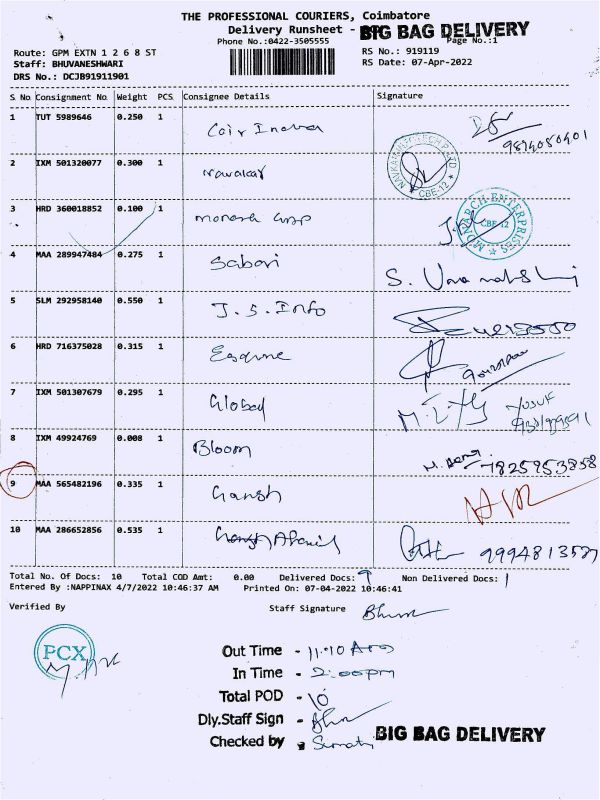 THE PROFESSIONAL COURIERS, Coimbatore
Delivery Runsheet - BIG BAG DELIVERY
Phone No.:0422-3505555 Page No.:1
Route: GPM EXTN 1 2 6 8 ST RS No.: 919119
Staff: BHUVANESHWARI RS Date: 07-Apr-2022
DRS No.: DCJB91911901
S No Consignment No Weight PCS Consignee Details Signature
1 TUT 5989646 0.250 1
2 IXM 501320077 0.300 1 Navakar CBE-12
3 HRD 360018852 0.100 1 MONARCH ENTERPRISES CBE-12
4 MAA 289947484 0.275 1 Sabari S.
5 SLM 292958140 0.550 1 J.S. Info
6 HRD 716375028 0.315 1
7 IXM 501307679 0.295 1 Global Yusuf
8 IXM 49924769 0.008 1 Bloom 7825953858
9 MAA 565482196 0.335 1 Ganesh
10 MAA 286652856 0.535 1
Total No. Of Docs: 10 Total COD Amt: 0.00 Delivered Docs: 9 Non Delivered Docs: 1
Entered By :NAPPINAX 4/7/2022 10:46:37 AM Printed On: 07-04-2022 10:46:41
Verified By Staff Signature
PCX
Out Time - 11.10 Am
In Time - 2:00pm
Total POD - 10
Dly.Staff Sign -
Checked by - Sumathi BIG BAG DELIVERY